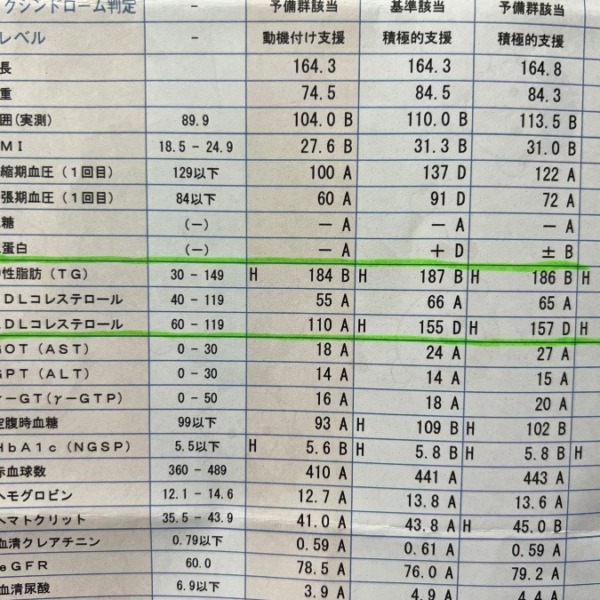 クシンドローム判定 - 予備群該当 基準該当 予備群該当
レベル - 動機付け支援 積極的支援 積極的支援
長 164.3 164.3 164.8
重 74.5 84.5 84.3
囲(実測) 89.9 104.0 B 110.0 B 113.5 B
MI 18.5 - 24.9 27.6 B 31.3 B 31.0 B
縮期血圧（1回目） 129以下 100 A 137 D 122 A
張期血圧（1回目） 84以下 60 A 91 D 72 A
糖 (－) － A － A － A
蛋白 (－) － A ＋ D ± B
性脂肪（TG） 30 - 149 H 184 B H 187 B H 186 B H
DLコレステロール 40 - 119 55 A 66 A 65 A
DLコレステロール 60 - 119 110 A H 155 D H 157 D H
GOT（AST） 0 - 30 18 A 24 A 27 A
GPT（ALT） 0 - 30 14 A 14 A 15 A
γ－GT(γ－GTP) 0 - 50 16 A 18 A 20 A
空腹時血糖 99以下 93 A H 109 B H 102 B
HbA1c（NGSP） 5.5以下 H 5.6 B H 5.8 B H 5.8 B H
赤血球数 360 - 489 410 A 441 A 443 A
ヘモグロビン 12.1 - 14.6 12.7 A 13.8 A 13.6 A
ヘマトクリット 35.5 - 43.9 41.0 A 43.8 A H 45.0 B
血清クレアチニン 0.79以下 0.59 A 0.61 A 0.59 A
eGFR 60.0 78.5 A 76.0 A 79.2 A
血清尿酸 6.9以下 3.9 A 4.9 A 4.4 A